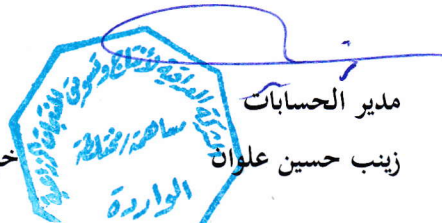 مدير الحسابات
زينب حسين علوان
الشركة العراقية لأنتاج وتسويق
مساهمة/مختلطة
الواردة